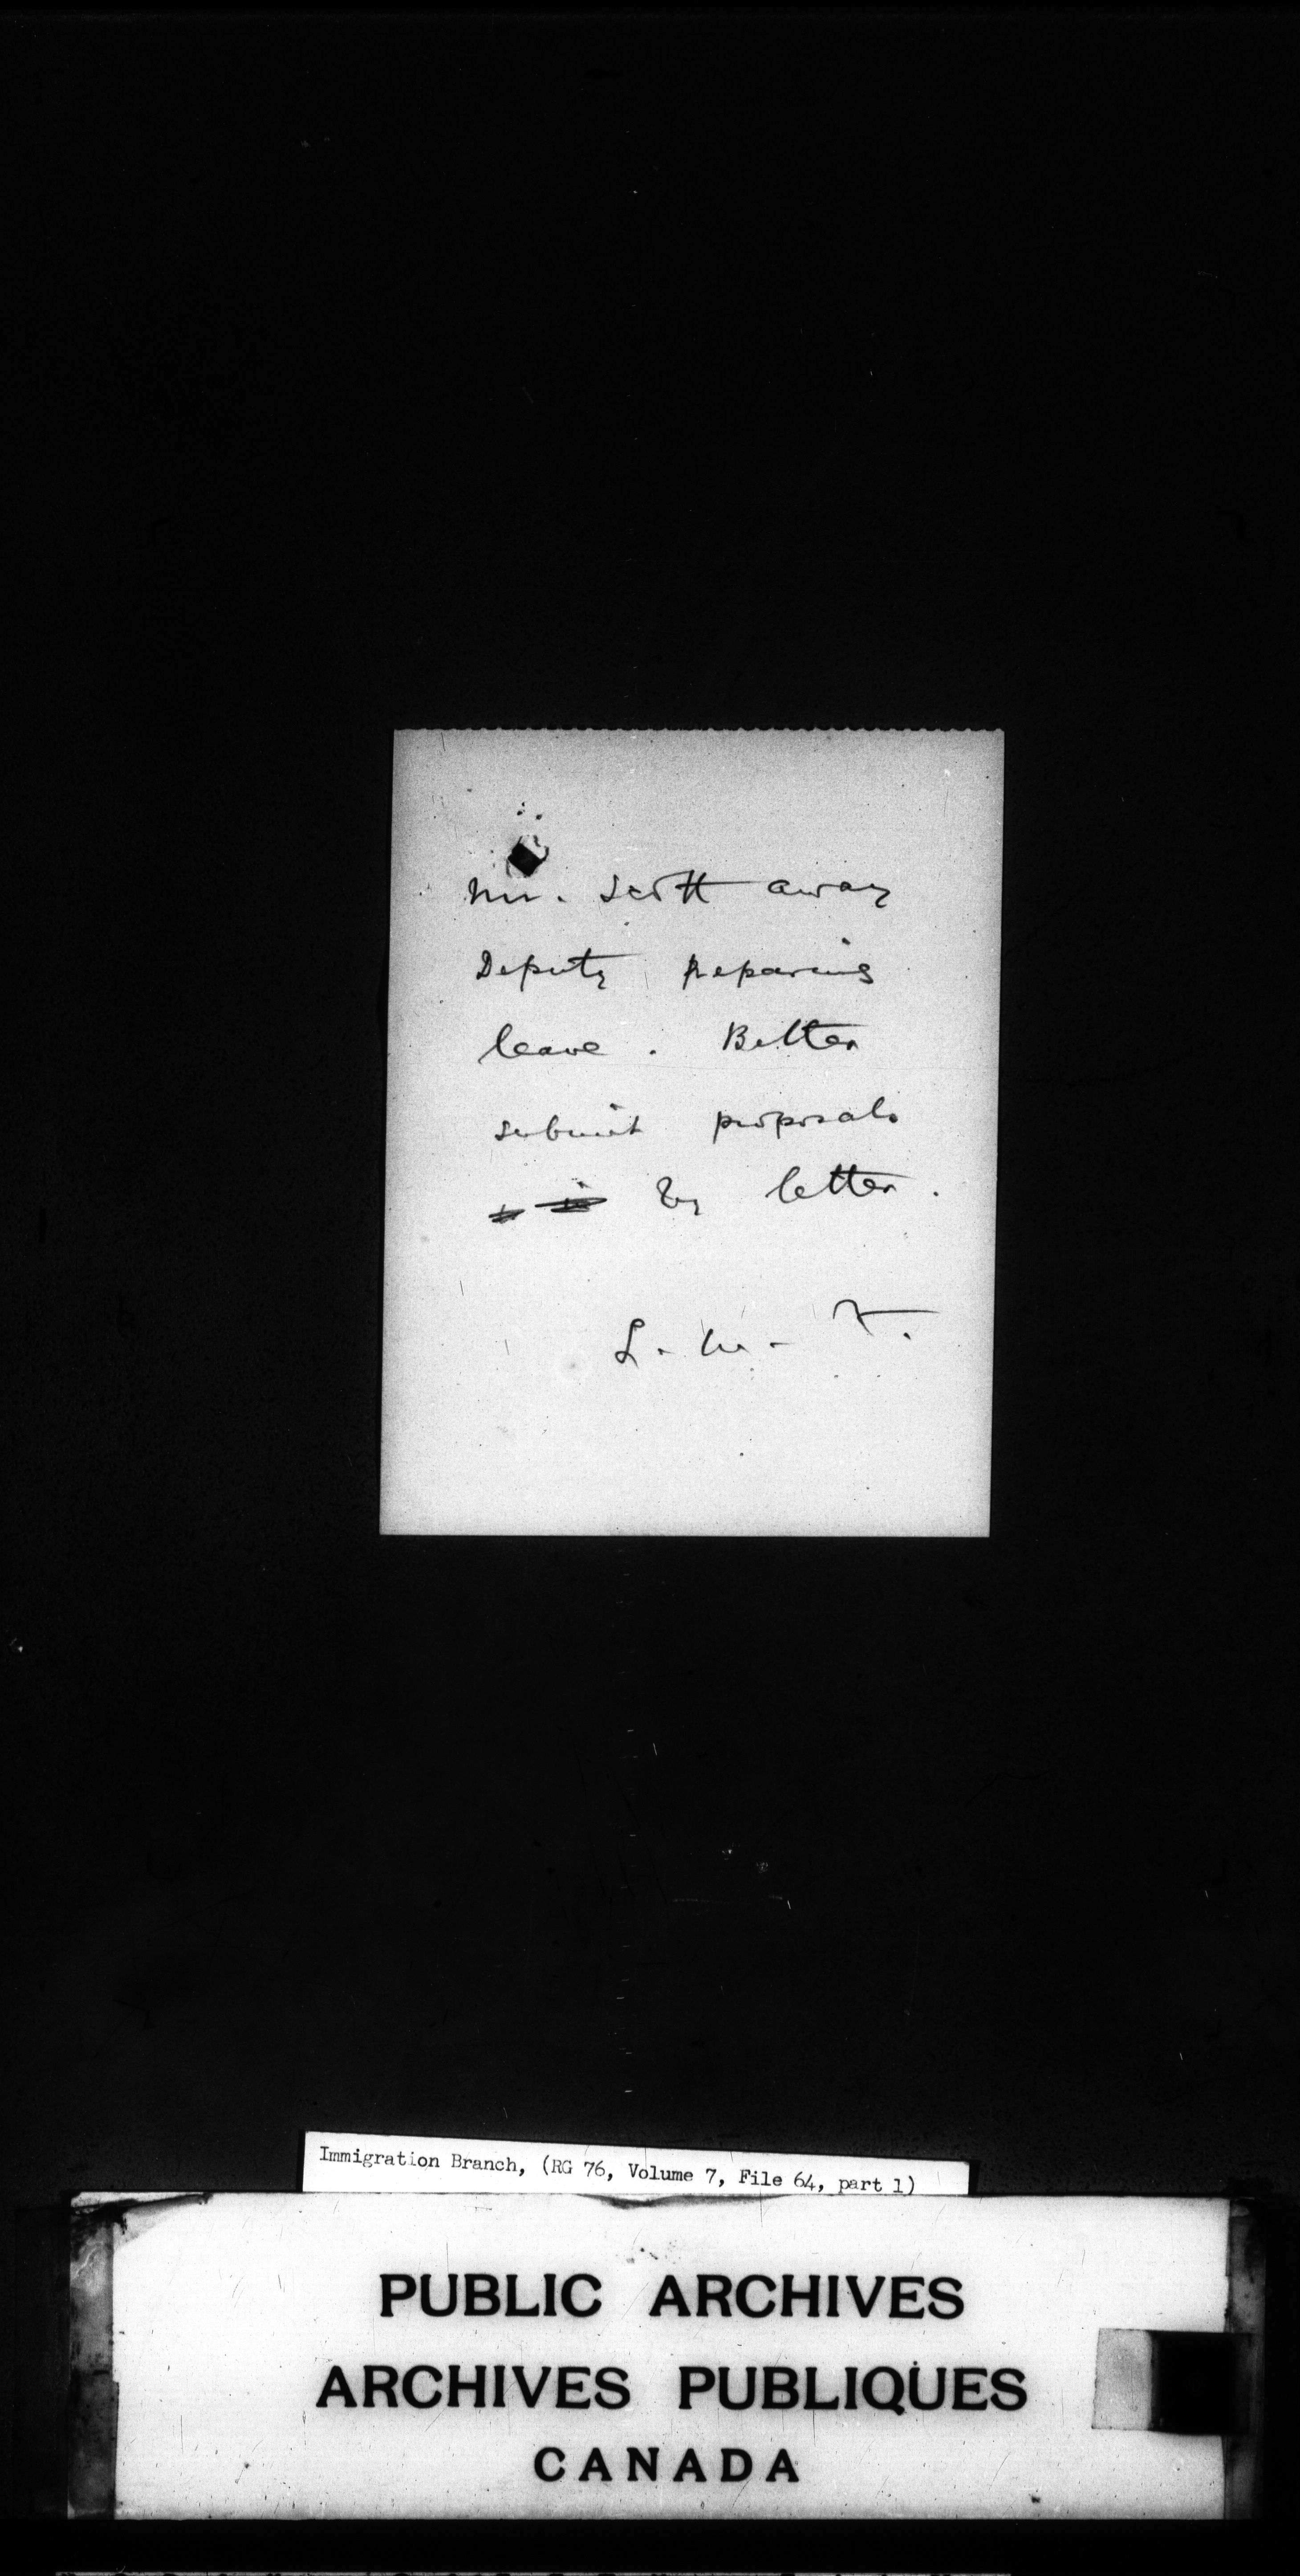 Mr. Scott away
Deputy preparing
leave. Better
submit proposals
by letter.
L. M. F.
Immigration Branch, (RG 76, Volume 7, File 64, part 1)
PUBLIC ARCHIVES
ARCHIVES PUBLIQUES
CANADA